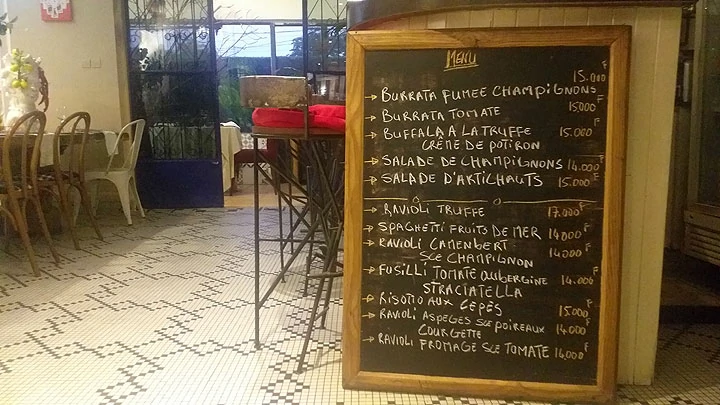 MENU
BURRATA FUMEE CHAMPIGNONS 15.000F
BURRATA TOMATE 15000F
BUFFALA A LA TRUFFE 15.000F
CRÈME DE POTIRON
SALADE DE CHAMPIGNONS 14.000F
SALADE D'ARTICHAUTS 15.000F
RAVIOLI TRUFFE 17.000F
SPAGHETTI FRUITS DE MER 14000F
RAVIOLI CAMEMBERT 14000F
SCE CHAMPIGNON
FUSILLI TOMATE AUBERGINE 14.000F
STRACIATELLA
RISOTTO AUX CEPES 15.000F
RAVIOLI ASPEGES SCE POIREAUX 14.000F
COURGETTE
RAVIOLI FROMAGE SCE TOMATE 14,000F